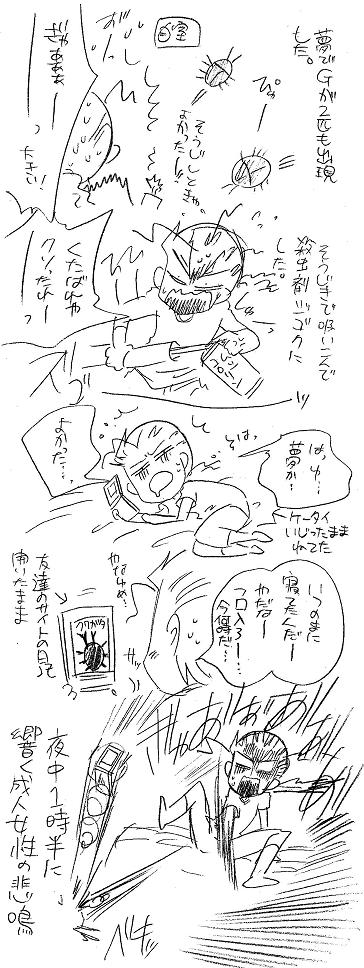 夢でGが2匹も出現
した。
ぴゅー
自室
そうじしときゃ
よかったー!!
お
ぎゃああぁー
っ
大きい!
そうじきで吸いこんで
殺虫剤ジゴクに
した。
くたばれや
クソったれー
っ
はっ
ゆ…
夢か…
がばっ
よかった…
←ケータイ
いじったまま
ねてた
いつのまに
寝てたんだー
やだなー
フロ入ろー…
今何時だ…
やなゆめ…
友達のサイトの日記
開いたまま
クワガタ
あ゛あ゛あ゛あ゛
バキッ
夜中1時半に
響く成人女性の悲鳴